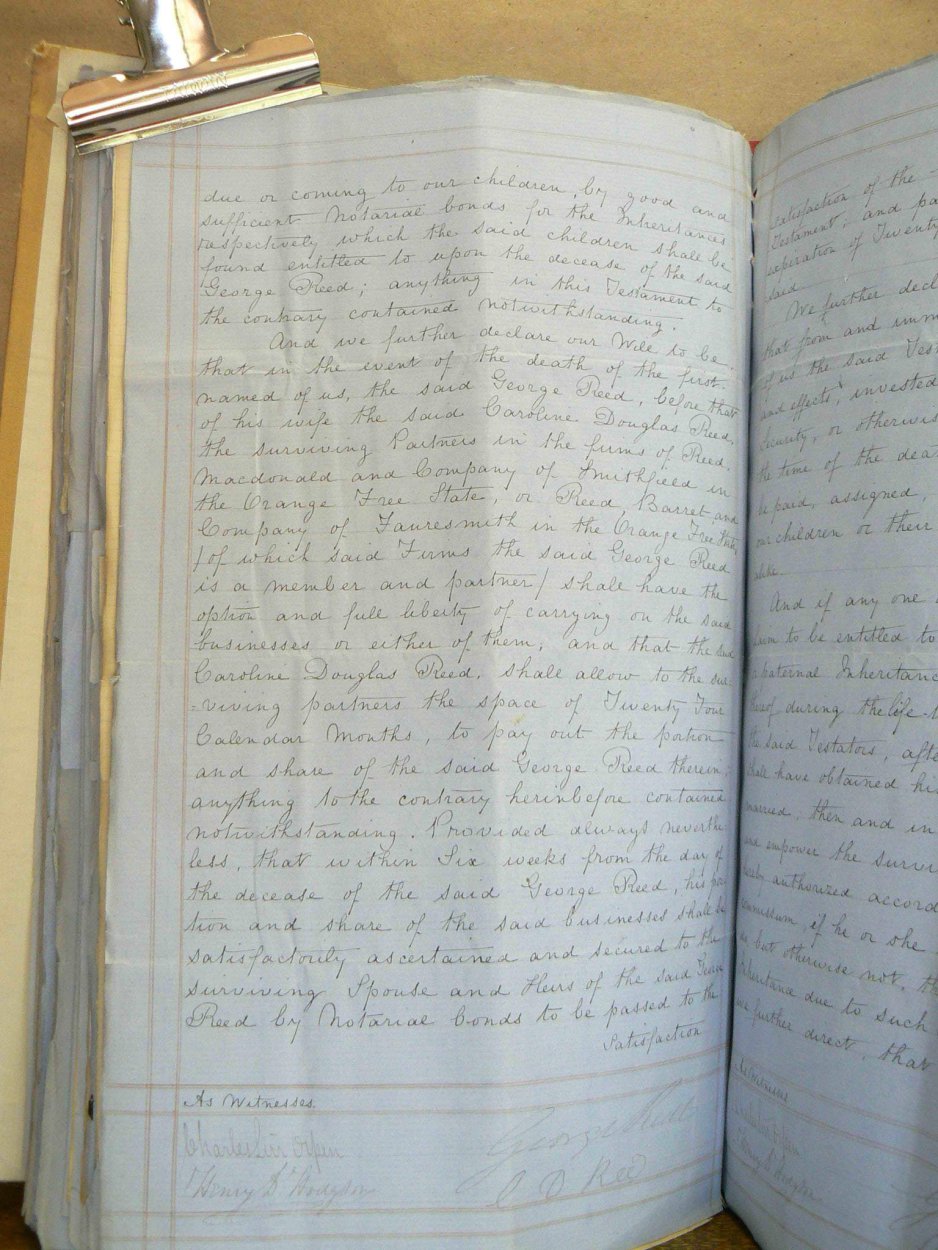 due or coming to our children, by good and
sufficient Notarial bonds for the Inheritances
respectively which the said children shall be
found entitled to upon the decease of the said
George Reed; anything in this Testament to
the contrary contained notwithstanding.
And we further declare our Will to be
that in the event of the death of the first
named of us, the said George Reed, before that
of his wife the said Caroline Douglas Reed,
the surviving Partners in the firms of Reed,
Macdonald and Company of Smithfield in
the Orange Free State, or Reed, Barret, and
Company of Fauresmith in the Orange Free State,
/of which said Firms the said George Reed
is a member and partner/ shall have the
option and full liberty of carrying on the said
businesses or either of them, and that the said
Caroline Douglas Reed, shall allow to the sur=
=viving partners the space of Twenty Four
Calendar Months, to pay out the portion
and share of the said George Reed therein,
anything to the contrary herinbefore contained
notwithstanding. Provided always neverthe
less, that within Six weeks from the day of
the decease of the said George Reed, his por
tion and share of the said businesses shall be
satisfactorily ascertained and secured to the
surviving Spouse and Heirs of the said George
Reed by Notarial bonds to be passed to the
Satisfaction
As Witnesses.
Charles Orpen
George Reed
Henry Hodgson
C D Reed
Satisfaction of the
Testament; and pa
expiration of Twenty
said
We further decl
that from and imm
of us the said Tes
and effects, invested
Security, or otherwis
the time of the dea
be paid, assigned,
our children or their
alike.
And if any one
to be entitled to
paternal Inheritanc
thereof during the life
the said Testators, afte
shall have obtained hi
married, then and in
and empower the survi
hereby authorized accord
if he or she
but otherwise not, th
Inheritance due to such
we further direct, that
As Witnesses